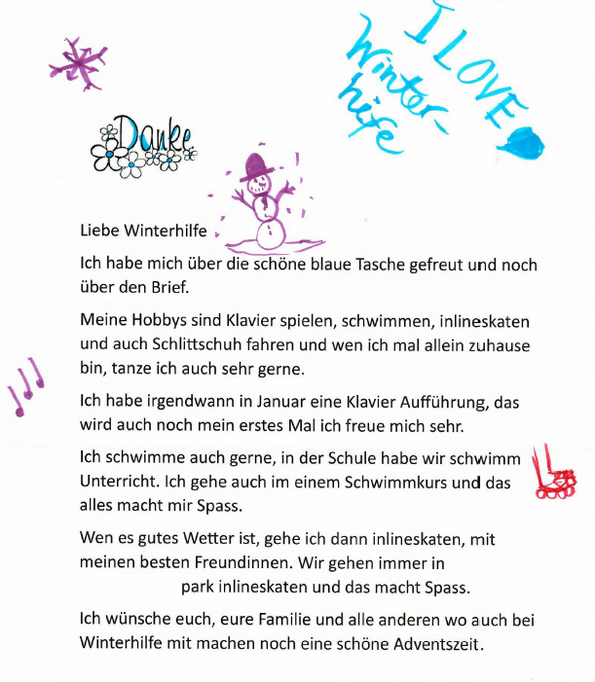 I LOVE
Winter-
hife
Danke
Liebe Winterhilfe
Ich habe mich über die schöne blaue Tasche gefreut und noch
über den Brief.
Meine Hobbys sind Klavier spielen, schwimmen, inlineskaten
und auch Schlittschuh fahren und wen ich mal allein zuhause
bin, tanze ich auch sehr gerne.
Ich habe irgendwann in Januar eine Klavier Aufführung, das
wird auch noch mein erstes Mal ich freue mich sehr.
Ich schwimme auch gerne, in der Schule habe wir schwimm
Unterricht. Ich gehe auch im einem Schwimmkurs und das
alles macht mir Spass.
Wen es gutes Wetter ist, gehe ich dann inlineskaten, mit
meinen besten Freundinnen. Wir gehen immer in
park inlineskaten und das macht Spass.
Ich wünsche euch, eure Familie und alle anderen wo auch bei
Winterhilfe mit machen noch eine schöne Adventszeit.